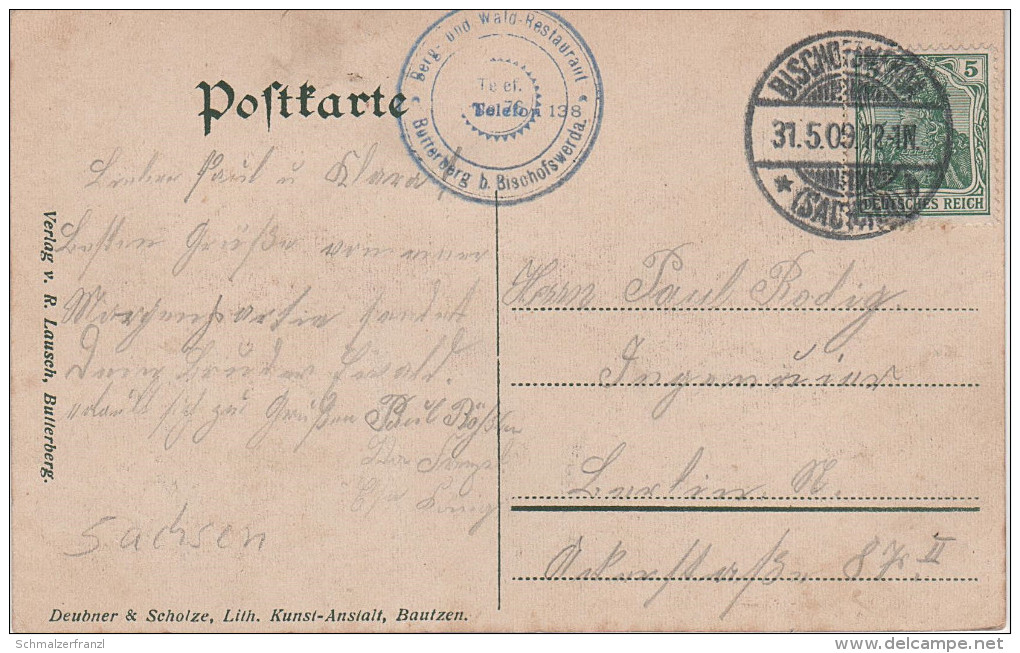 Postkarte
Berg- und Wald-Restaurant
Telef.
Telefon 138
Butterberg b. Bischofswerda.
BISCHOFSWERDA
31.5.09.12-1N.
* (SACHSEN) b
5
DEUTSCHES REICH
Lieber Paul u Klara
Besten Grüße von einer
Morgenpartie sendet
Dein Bruder Ewald.
sich zu Grüßen Paul
Sachsen
Herrn Paul Rodig.
Ingenieur
Berlin. N.
Ackerstraße 87. II
Verlag v. R. Lausch, Butterberg.
Deubner & Scholze, Lith. Kunst-Anstalt, Bautzen.
Schmalzerfranzl
delcampe.net